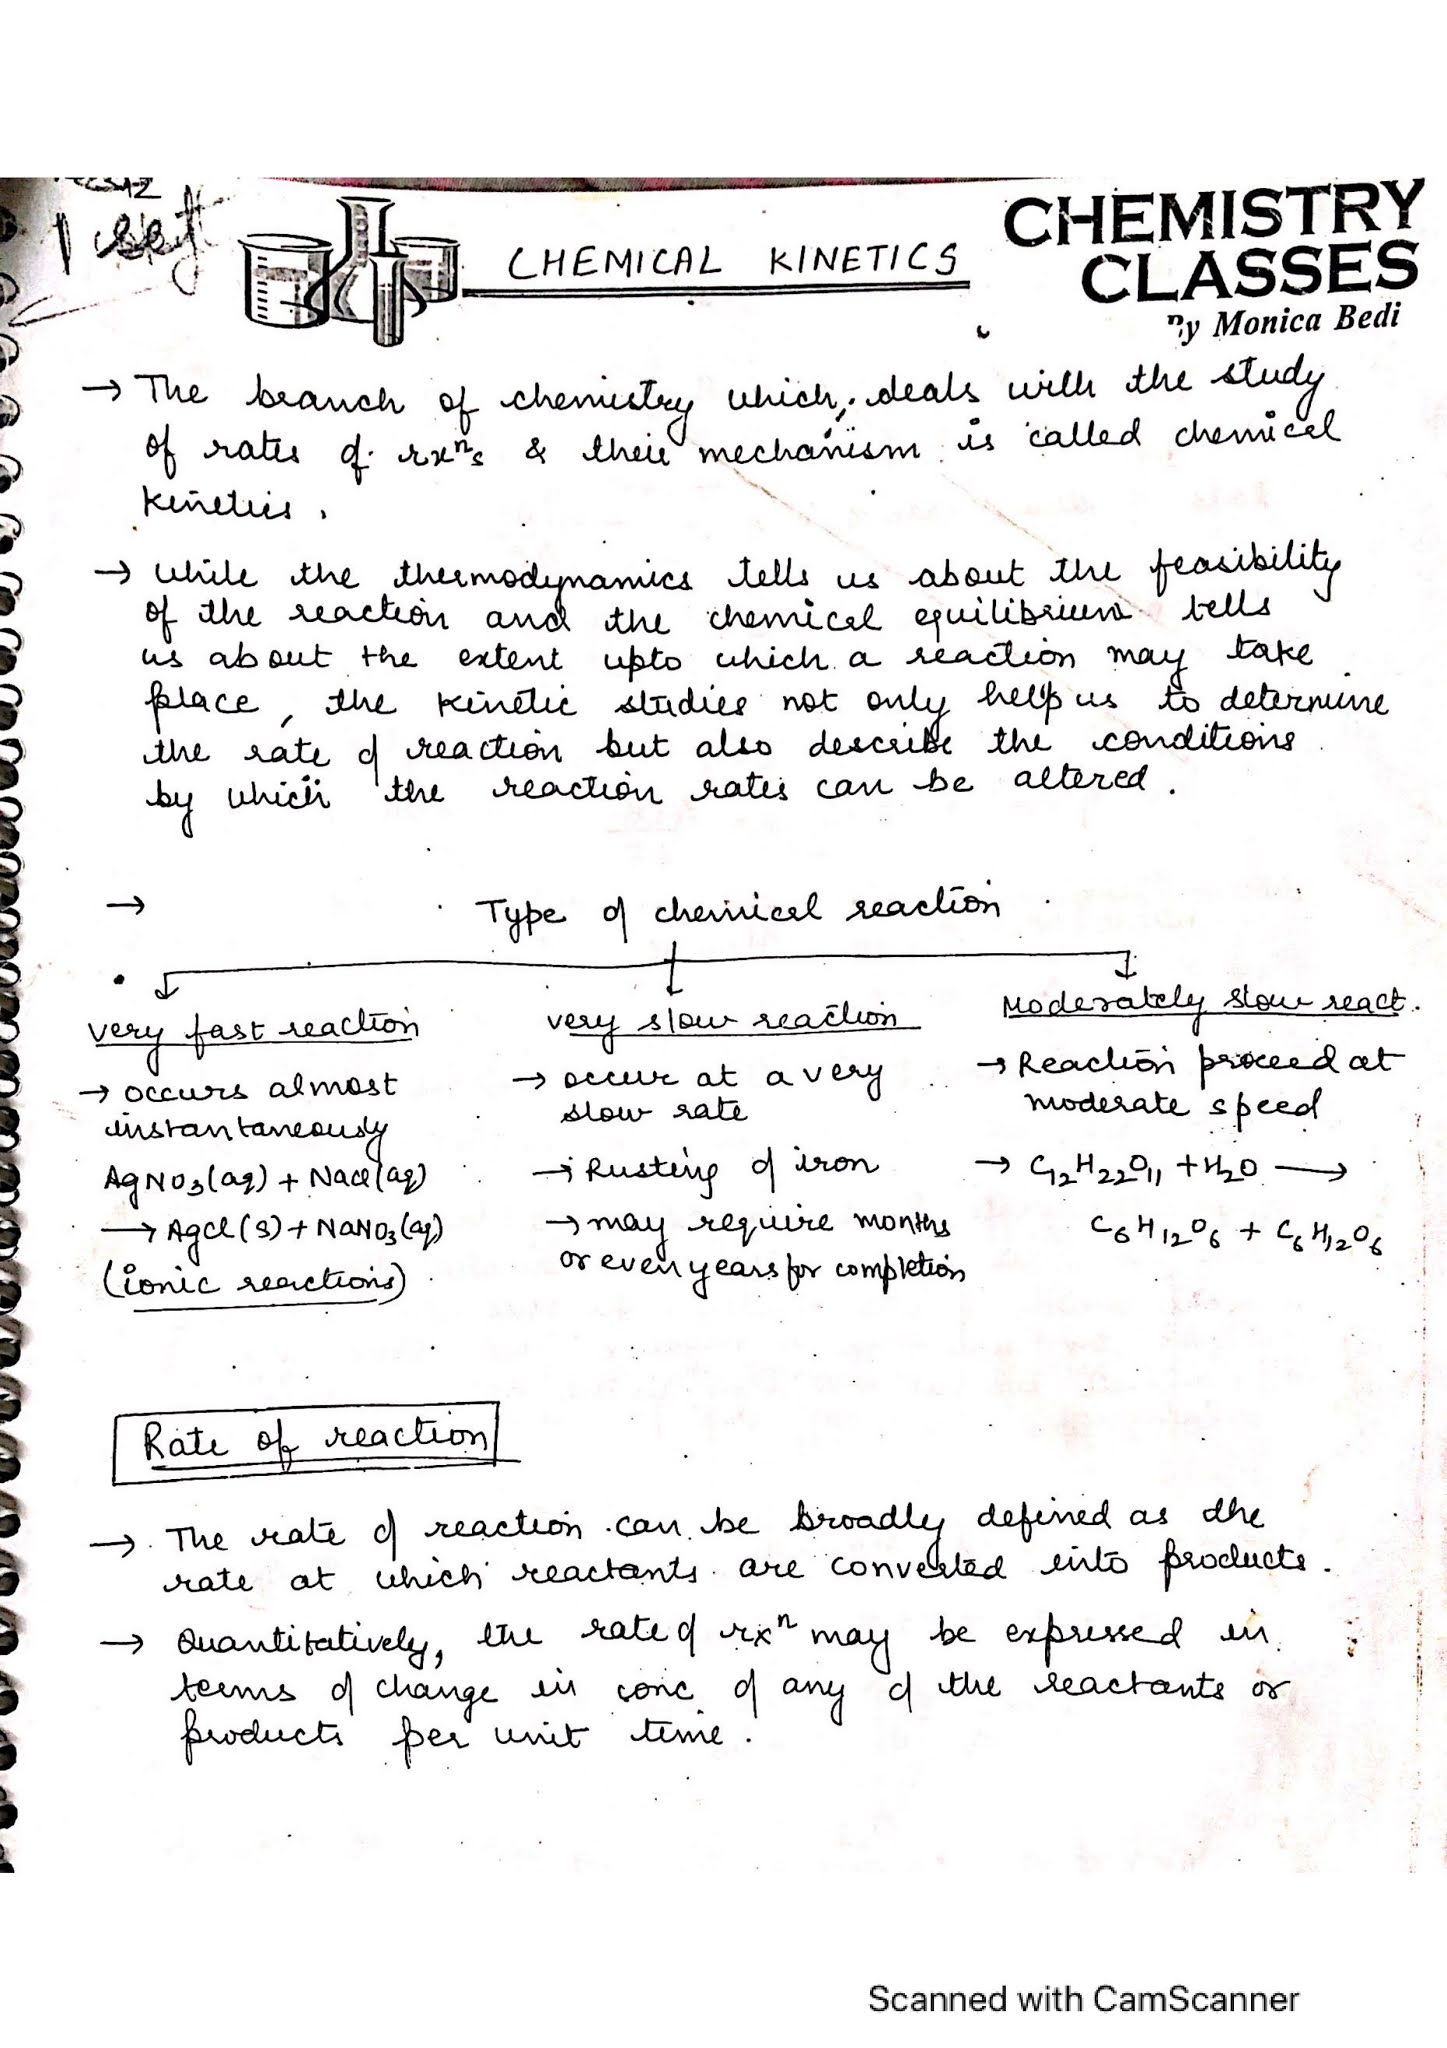 1 set
CHEMICAL KINETICS
CHEMISTRY
CLASSES
By Monica Bedi
→ The branch of chemistry which deals with the study
of rates of rxⁿs & their mechanism is called chemical
kinetics.
→ While the thermodynamics tells us about the feasibility
of the reaction and the chemical equilibrium tells
us about the extent upto which a reaction may take
place, the kinetic studies not only help us to determine
the rate of reaction but also describe the conditions
by which the reaction rates can be altered.
→ Type of chemical reaction
very fast reaction
→ occurs almost
instantaneously
AgNO₃(aq) + NaCl(aq)
⟶ AgCl(s) + NaNO₃(aq)
(ionic reactions)
very slow reaction
→ occur at a very
slow rate
→ Rusting of iron
→ may require months
or even years for completion
Moderately slow react.
→ Reaction proceed at
moderate speed
→ C₁₂H₂₂O₁₁ + H₂O ⟶
C₆H₁₂O₆ + C₆H₁₂O₆
Rate of reaction
→ The rate of reaction can be broadly defined as the
rate at which reactants are converted into products.
→ Quantitatively, the rate of rxⁿ may be expressed in
terms of change in conc of any of the reactants or
products per unit time.
Scanned with CamScanner